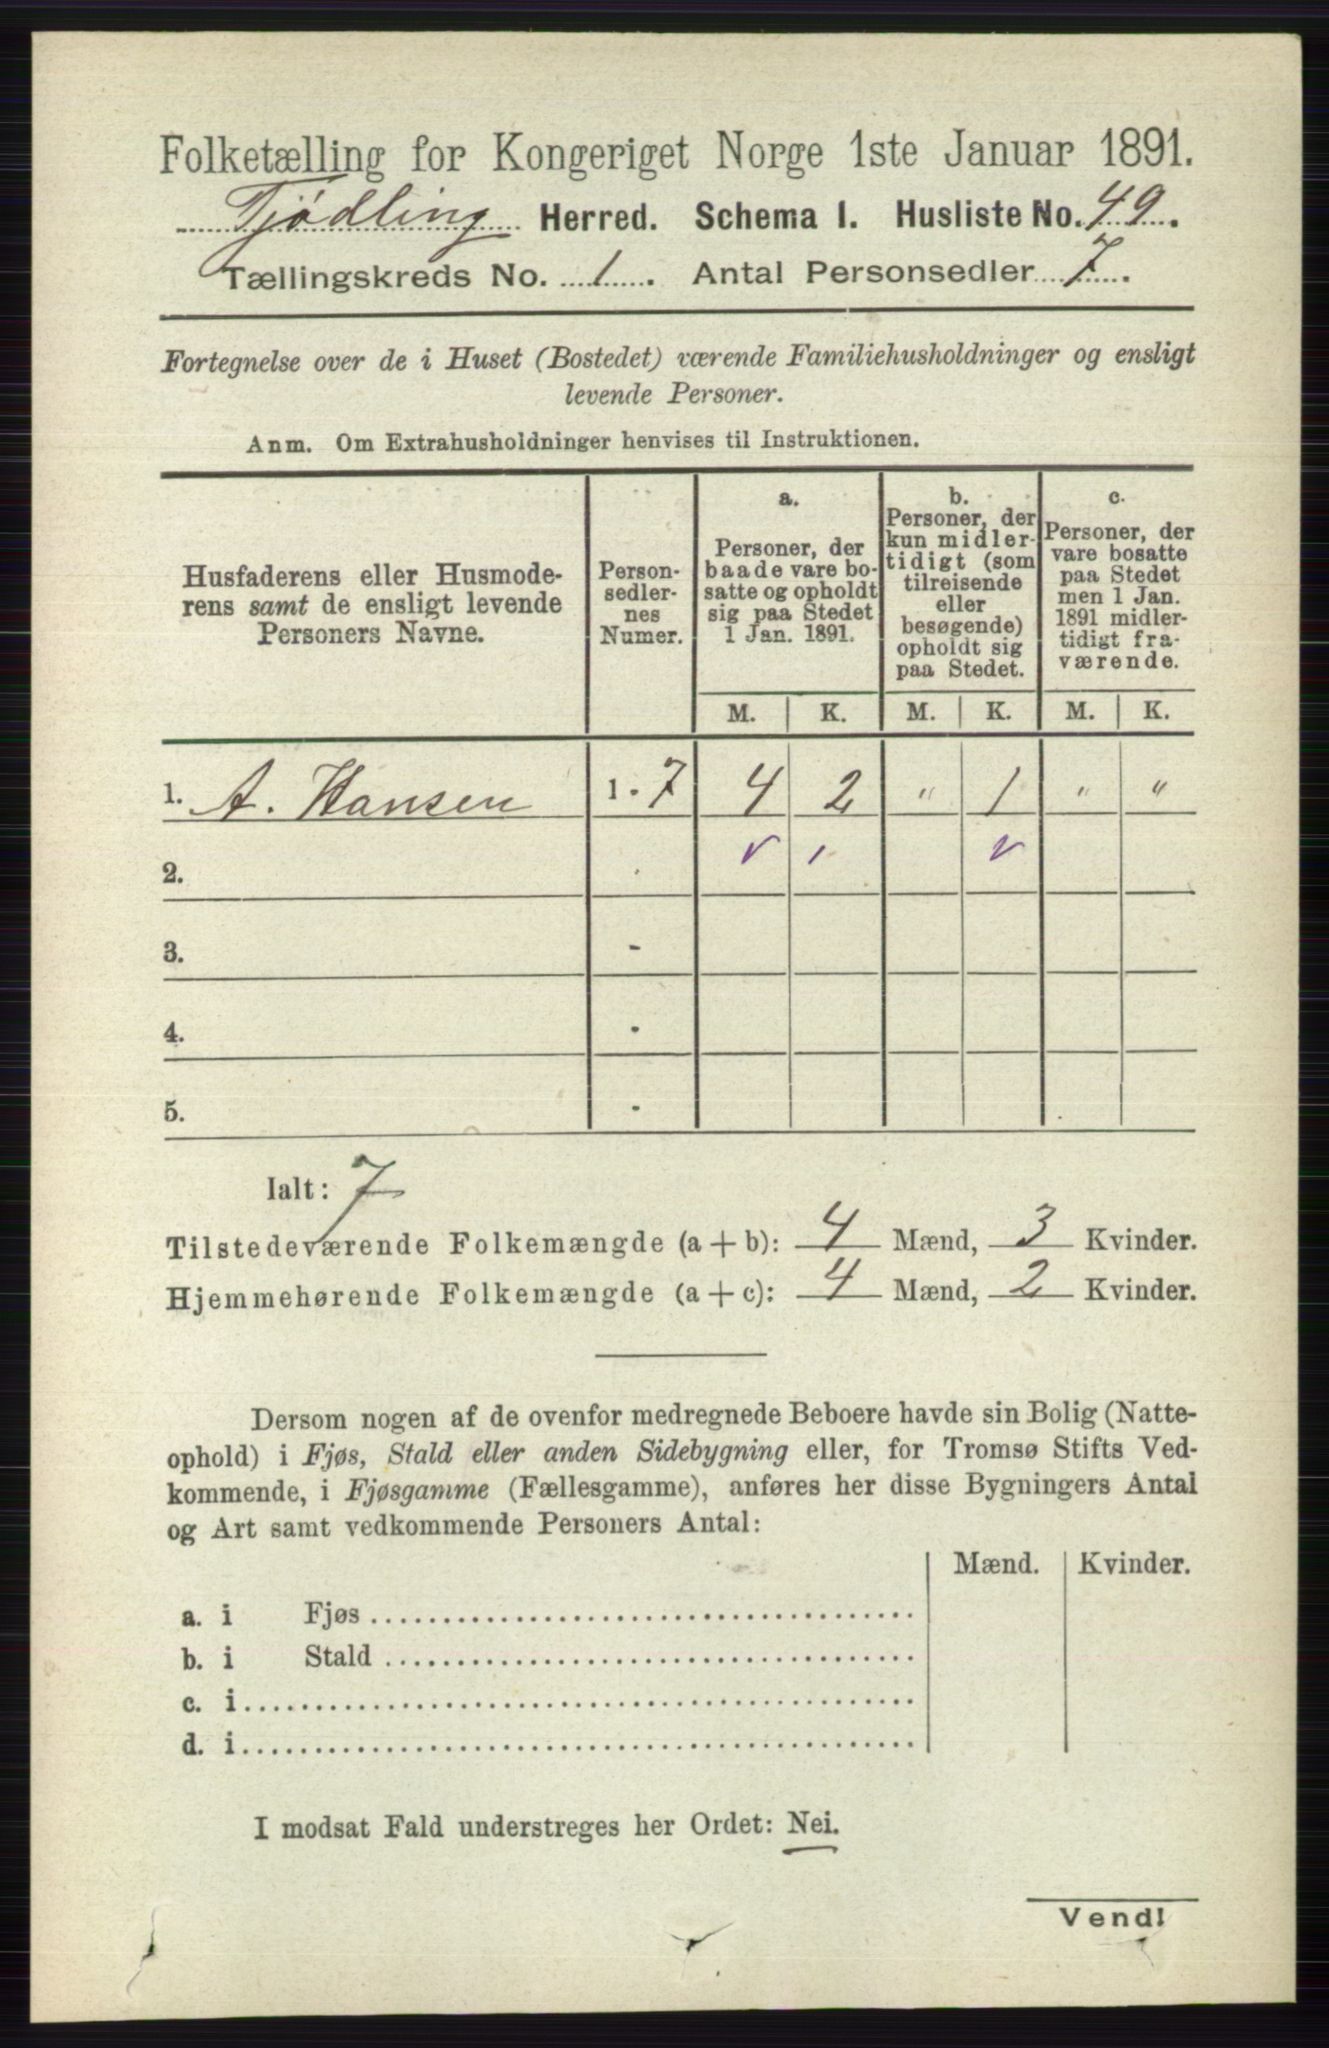 Folketælling for Kongeriget Norge 1ste Januar 1891.
Tjødling Herred. Schema I. Husliste No. 49.
Tællingskreds No. 1. Antal Personsedler 7.
Fortegnelse over de i Huset (Bostedet) værende Familiehusholdninger og ensligt
levende Personer.
Anm. Om Extrahusholdninger henvises til Instruktionen.
Husfaderens eller Husmode-
rens samt de ensligt levende
Personers Navne.
Person-
sedler-
nes
Numer.
a.
Personer, der
baade vare bo-
satte og opholdt
sig paa Stedet
1 Jan. 1891.
b.
Personer, der
kun midler-
tidigt (som
tilreisende
eller
besøgende)
opholdt sig
paa Stedet.
c.
Personer, der
vare bosatte
paa Stedet
men 1 Jan.
1891 midler-
tidigt fra-
værende.
M. K. M. K. M. K.
1. A. Hansen 1 - 7 4 2 " 1 " "
2.
3. -
4. -
5. -
Ialt: 7
Tilstedeværende Folkemængde (a + b): 4 Mænd, 3 Kvinder.
Hjemmehørende Folkemængde (a + c): 4 Mænd, 2 Kvinder.
Dersom nogen af de ovenfor medregnede Beboere havde sin Bolig (Natte-
ophold) i Fjøs, Stald eller anden Sidebygning eller, for Tromsø Stifts Ved-
kommende, i Fjøsgamme (Fællesgamme), anføres her disse Bygningers Antal
og Art samt vedkommende Personers Antal:
Mænd. Kvinder.
a. i Fjøs
b. i Stald
c. i
d. i
I modsat Fald understreges her Ordet: Nei.
Vend!